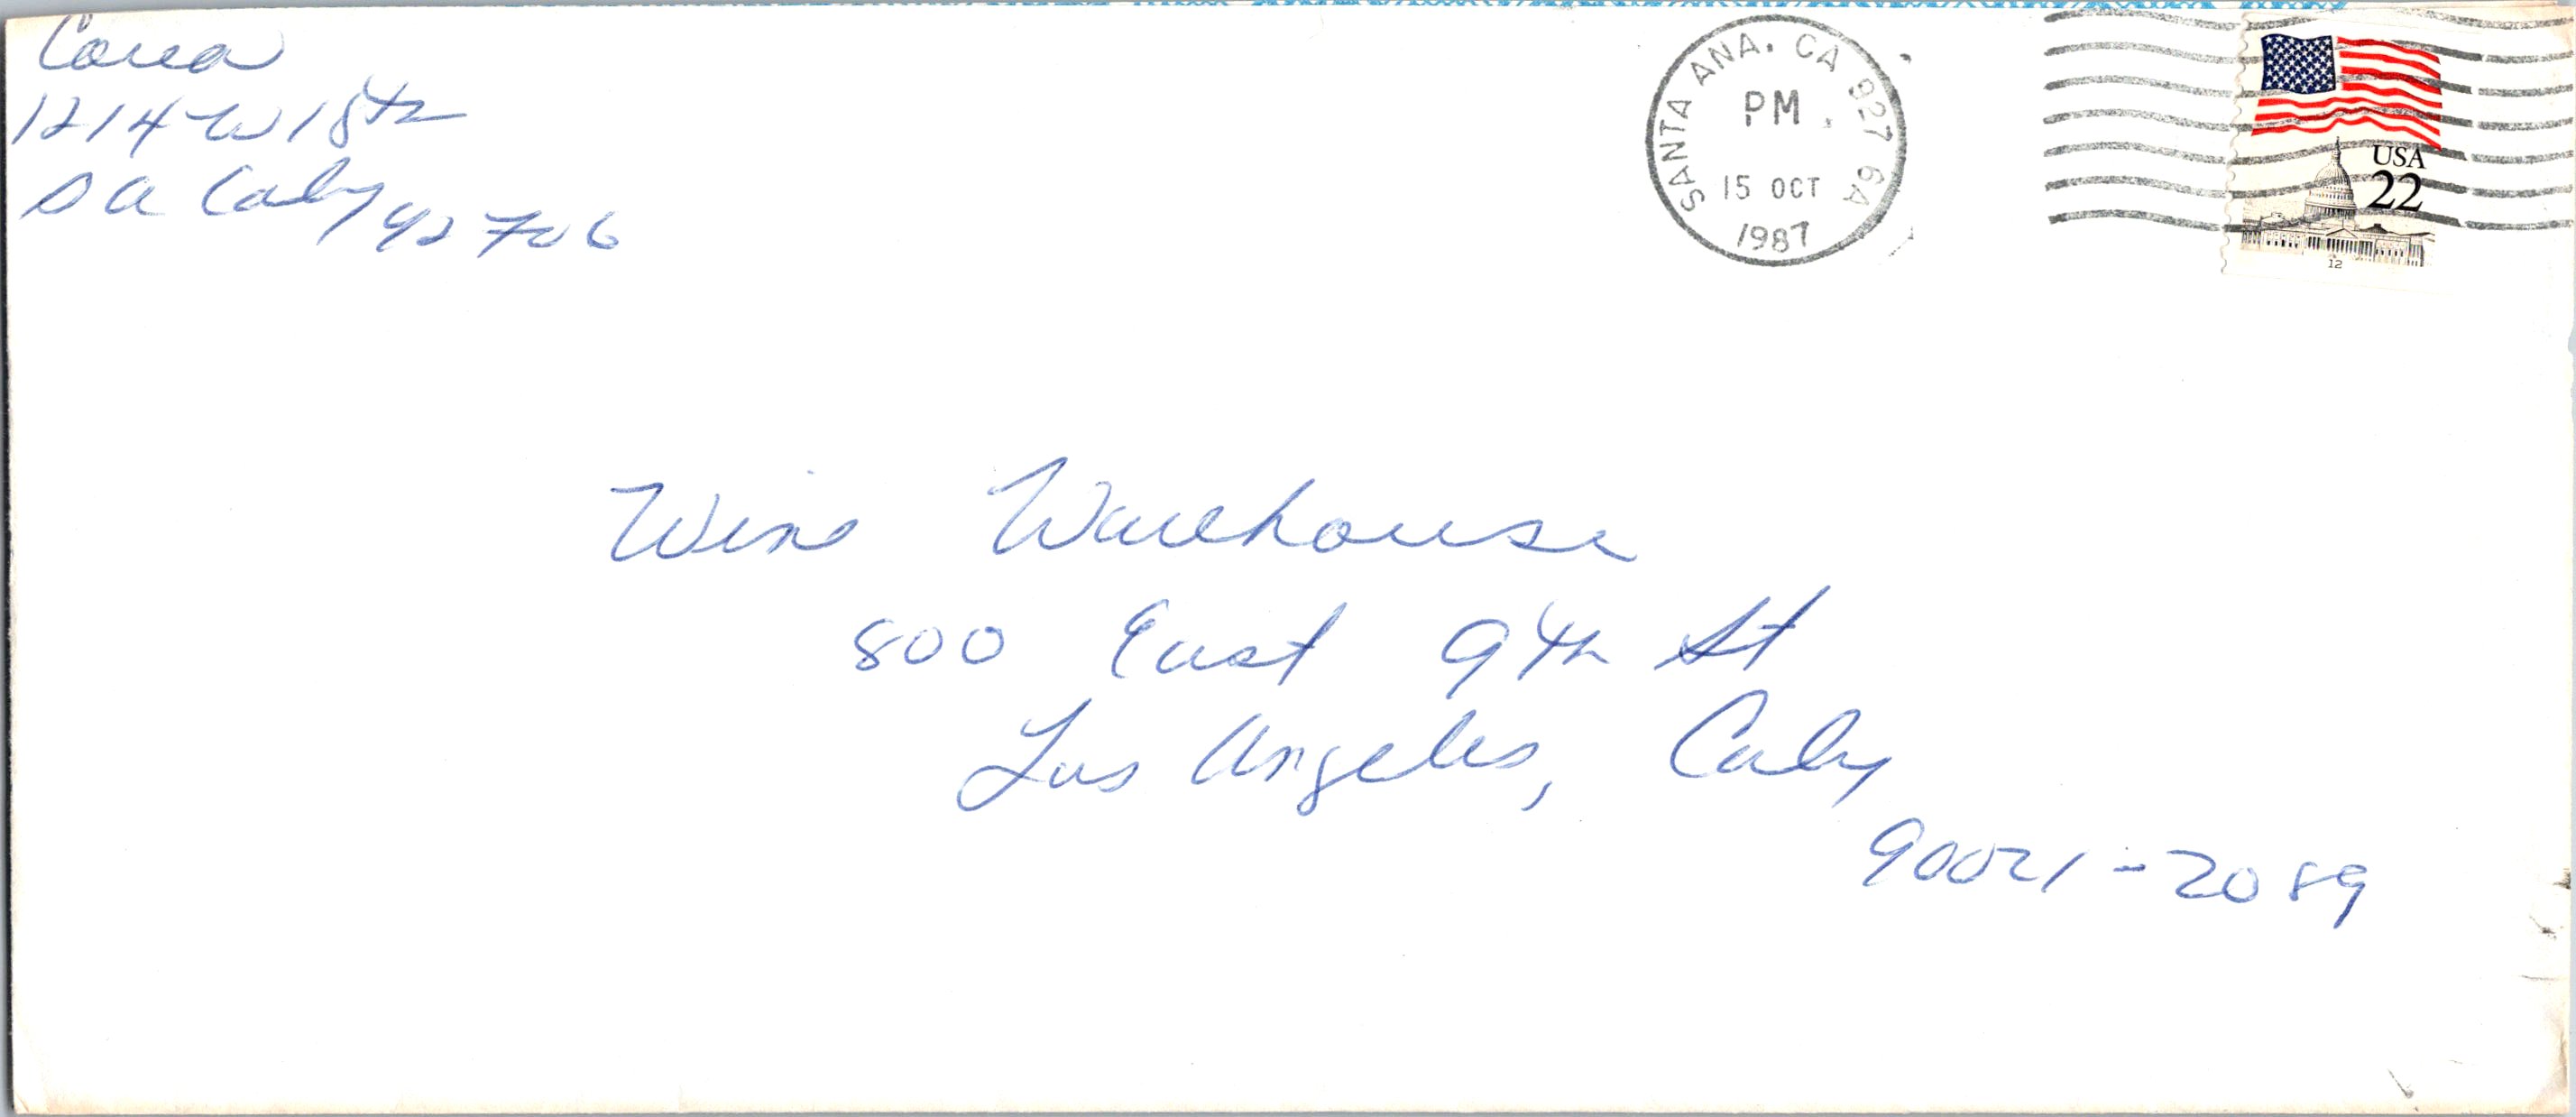 Correa
1214 W 18th
S A Calif 92706
SANTA ANA. CA 927 6A
PM
15 OCT
1987
USA
22
12
Wine Warehouse
800 East 9th St
Los Angeles, Calif
90021-2089